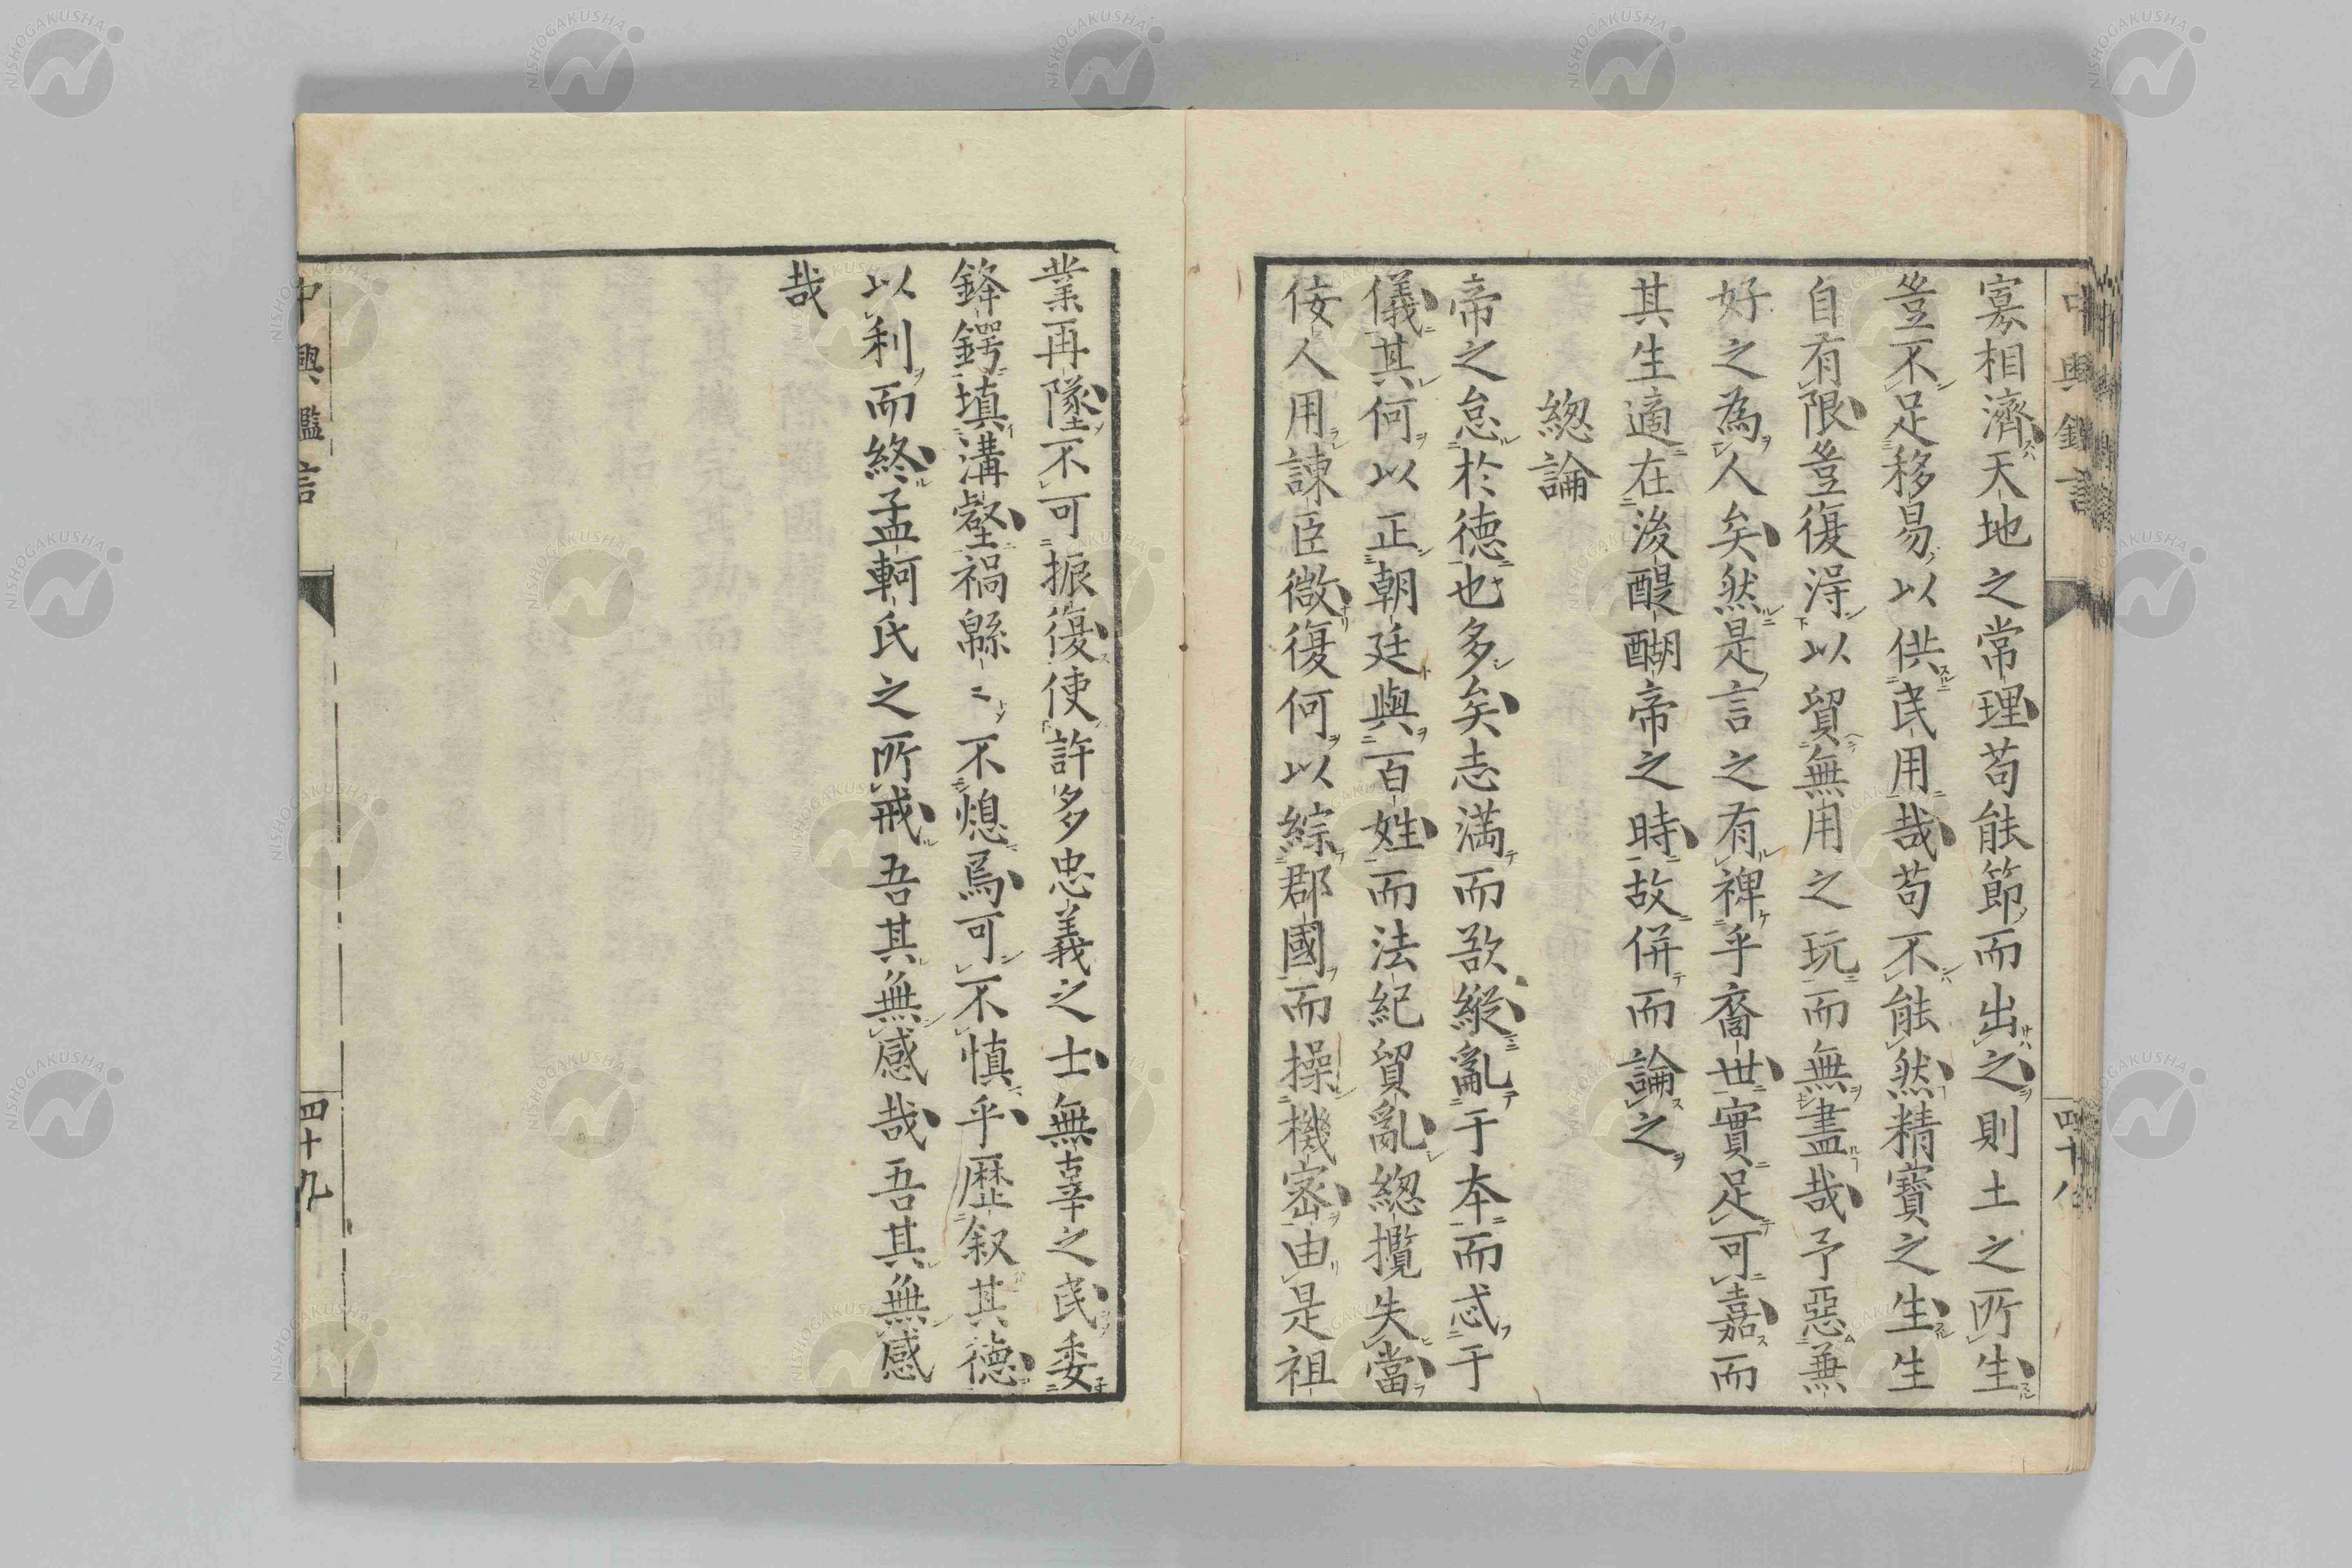 寡相濟天地之常理苟能節而出之則土之所生
豈不足移易以供民用哉苟不能然精寶之生生
自有限豈復淂以貿無用之玩而無盡哉予惡無
好之為人矣然是言之有裨乎裔世實足可嘉而
其生適在後醍醐帝之時故併而論之
總論
帝之怠於德也多矣志滿而欲縱亂于本而忒于
儀其何以正朝廷與百姓而法紀貿亂總攬失當
佞人用諫臣微復何以綜郡國而操機密由是祖
中興鑑言
四十八
業再墜不可振復使許多忠義之士無辜之民委
鋒鍔填溝壑禍緜〻不熄焉可不慎乎歷叙其德
以利而終孟軻氏之所戒吾其無感哉吾其無感
哉
中興鑑言
四十九
NISHOGAKUSHA